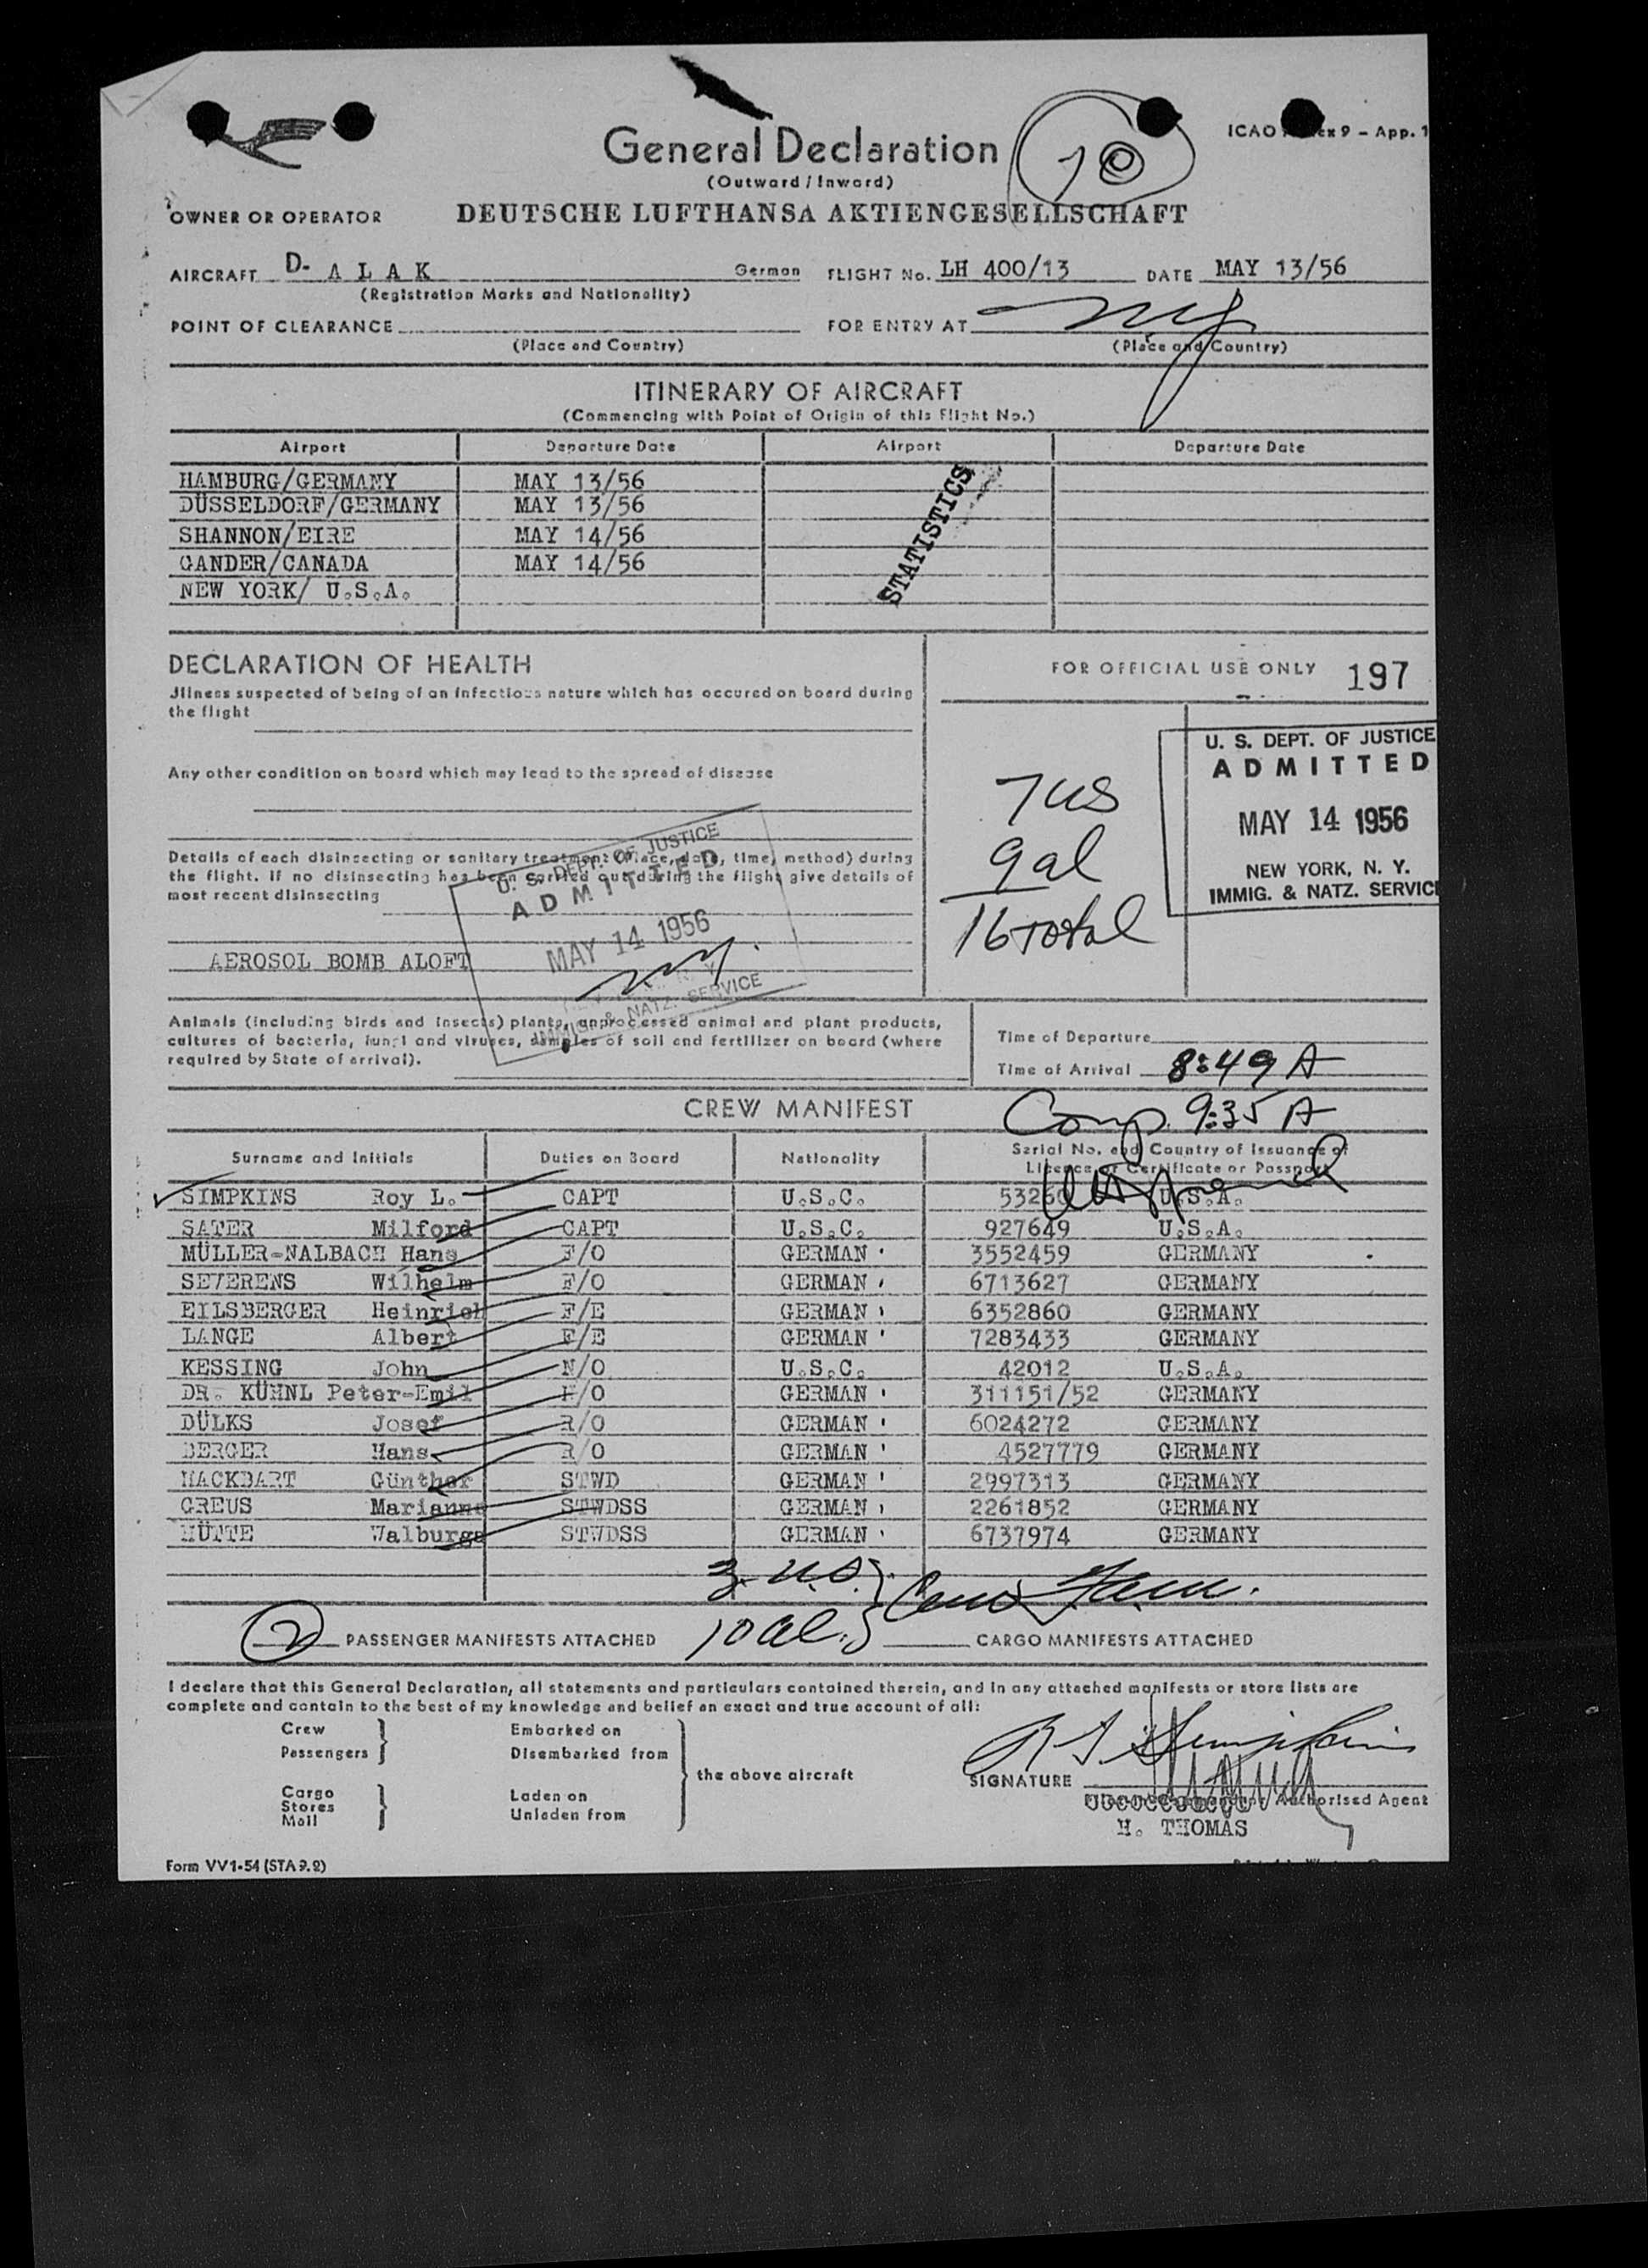 General Declaration
(Outward / Inward)
10
ICAO 9 - App. 1
OWNER OR OPERATOR DEUTSCHE LUFTHANSA AKTIENGESELLSCHAFT
AIRCRAFT D- A L A K German FLIGHT No. LH 400/13 DATE MAY 13/56
(Registration Marks and Nationality)
POINT OF CLEARANCE FOR ENTRY AT NY
(Place and Country) (Place and Country)
ITINERARY OF AIRCRAFT
(Commencing with Point of Origin of this Flight No.)
Airport Departure Date Airport Departure Date
HAMBURG/GERMANY MAY 13/56
DÜSSELDORF/GERMANY MAY 13/56
SHANNON/EIRE MAY 14/56
GANDER/CANADA MAY 14/56
NEW YORK/ U.S.A.
STATISTICS
DECLARATION OF HEALTH
Jllness suspected of being of an infectious nature which has occured on board during
the flight
Any other condition on board which may lead to the spread of disease
Details of each disinsecting or sanitary treatment (place, date, time, method) during
the flight. If no disinsecting has been carried out during the flight give details of
most recent disinsecting
AEROSOL BOMB ALOFT
U. S. DEPT. OF JUSTICE
ADMITTED
MAY 14 1956
N. Y.
IMMIG. & NATZ. SERVICE
FOR OFFICIAL USE ONLY 197
7 US
9 al
16 total
U. S. DEPT. OF JUSTICE
ADMITTED
MAY 14 1956
NEW YORK, N. Y.
IMMIG. & NATZ. SERVIC
Animals (including birds and insects) plants, unprocessed animal and plant products,
cultures of bacteria, fungi and viruses, samples of soil and fertilizer on board (where
required by State of arrival).
Time of Departure
Time of Arrival 8:49 A
Comp. 9:35 A
CREW MANIFEST
Surname and Initials Duties on Board Nationality Serial No. and Country of Issuance of
Licence or Certificate or Passport
SIMPKINS Roy L. CAPT U.S.C. 53260 U.S.A.
SATER Milford CAPT U.S.C. 927649 U.S.A.
MÜLLER-NALBACH Hans F/O GERMAN 3552459 GERMANY
SEVERENS Wilhelm F/O GERMAN 6713627 GERMANY
EILSBERGER Heinrich F/E GERMAN 6352860 GERMANY
LANGE Albert F/E GERMAN 7283433 GERMANY
KESSING John N/O U.S.C. 42012 U.S.A.
DR. KÜHNL Peter-Emil /O GERMAN 311151/52 GERMANY
DÜLKS Josef R/O GERMAN 6024272 GERMANY
BERGER Hans R/O GERMAN 4527779 GERMANY
HACKBART Günther STWD GERMAN 2997313 GERMANY
GREUS Marianne STWDSS GERMAN 2261852 GERMANY
HÜTTE Walburga STWDSS GERMAN 6737974 GERMANY
3 US.
10 al.
2 PASSENGER MANIFESTS ATTACHED CARGO MANIFESTS ATTACHED
I declare that this General Declaration, all statements and particulars contained therein, and in any attached manifests or store lists are
complete and contain to the best of my knowledge and belief an exact and true account of all:
Crew
Passengers
Embarked on
Disembarked from
Cargo
Stores
Mail
Laden on
Unladen from
the above aircraft
R L Simpkins
SIGNATURE
Authorised Agent
H. THOMAS
Form VV1-54 (STA 9.2)